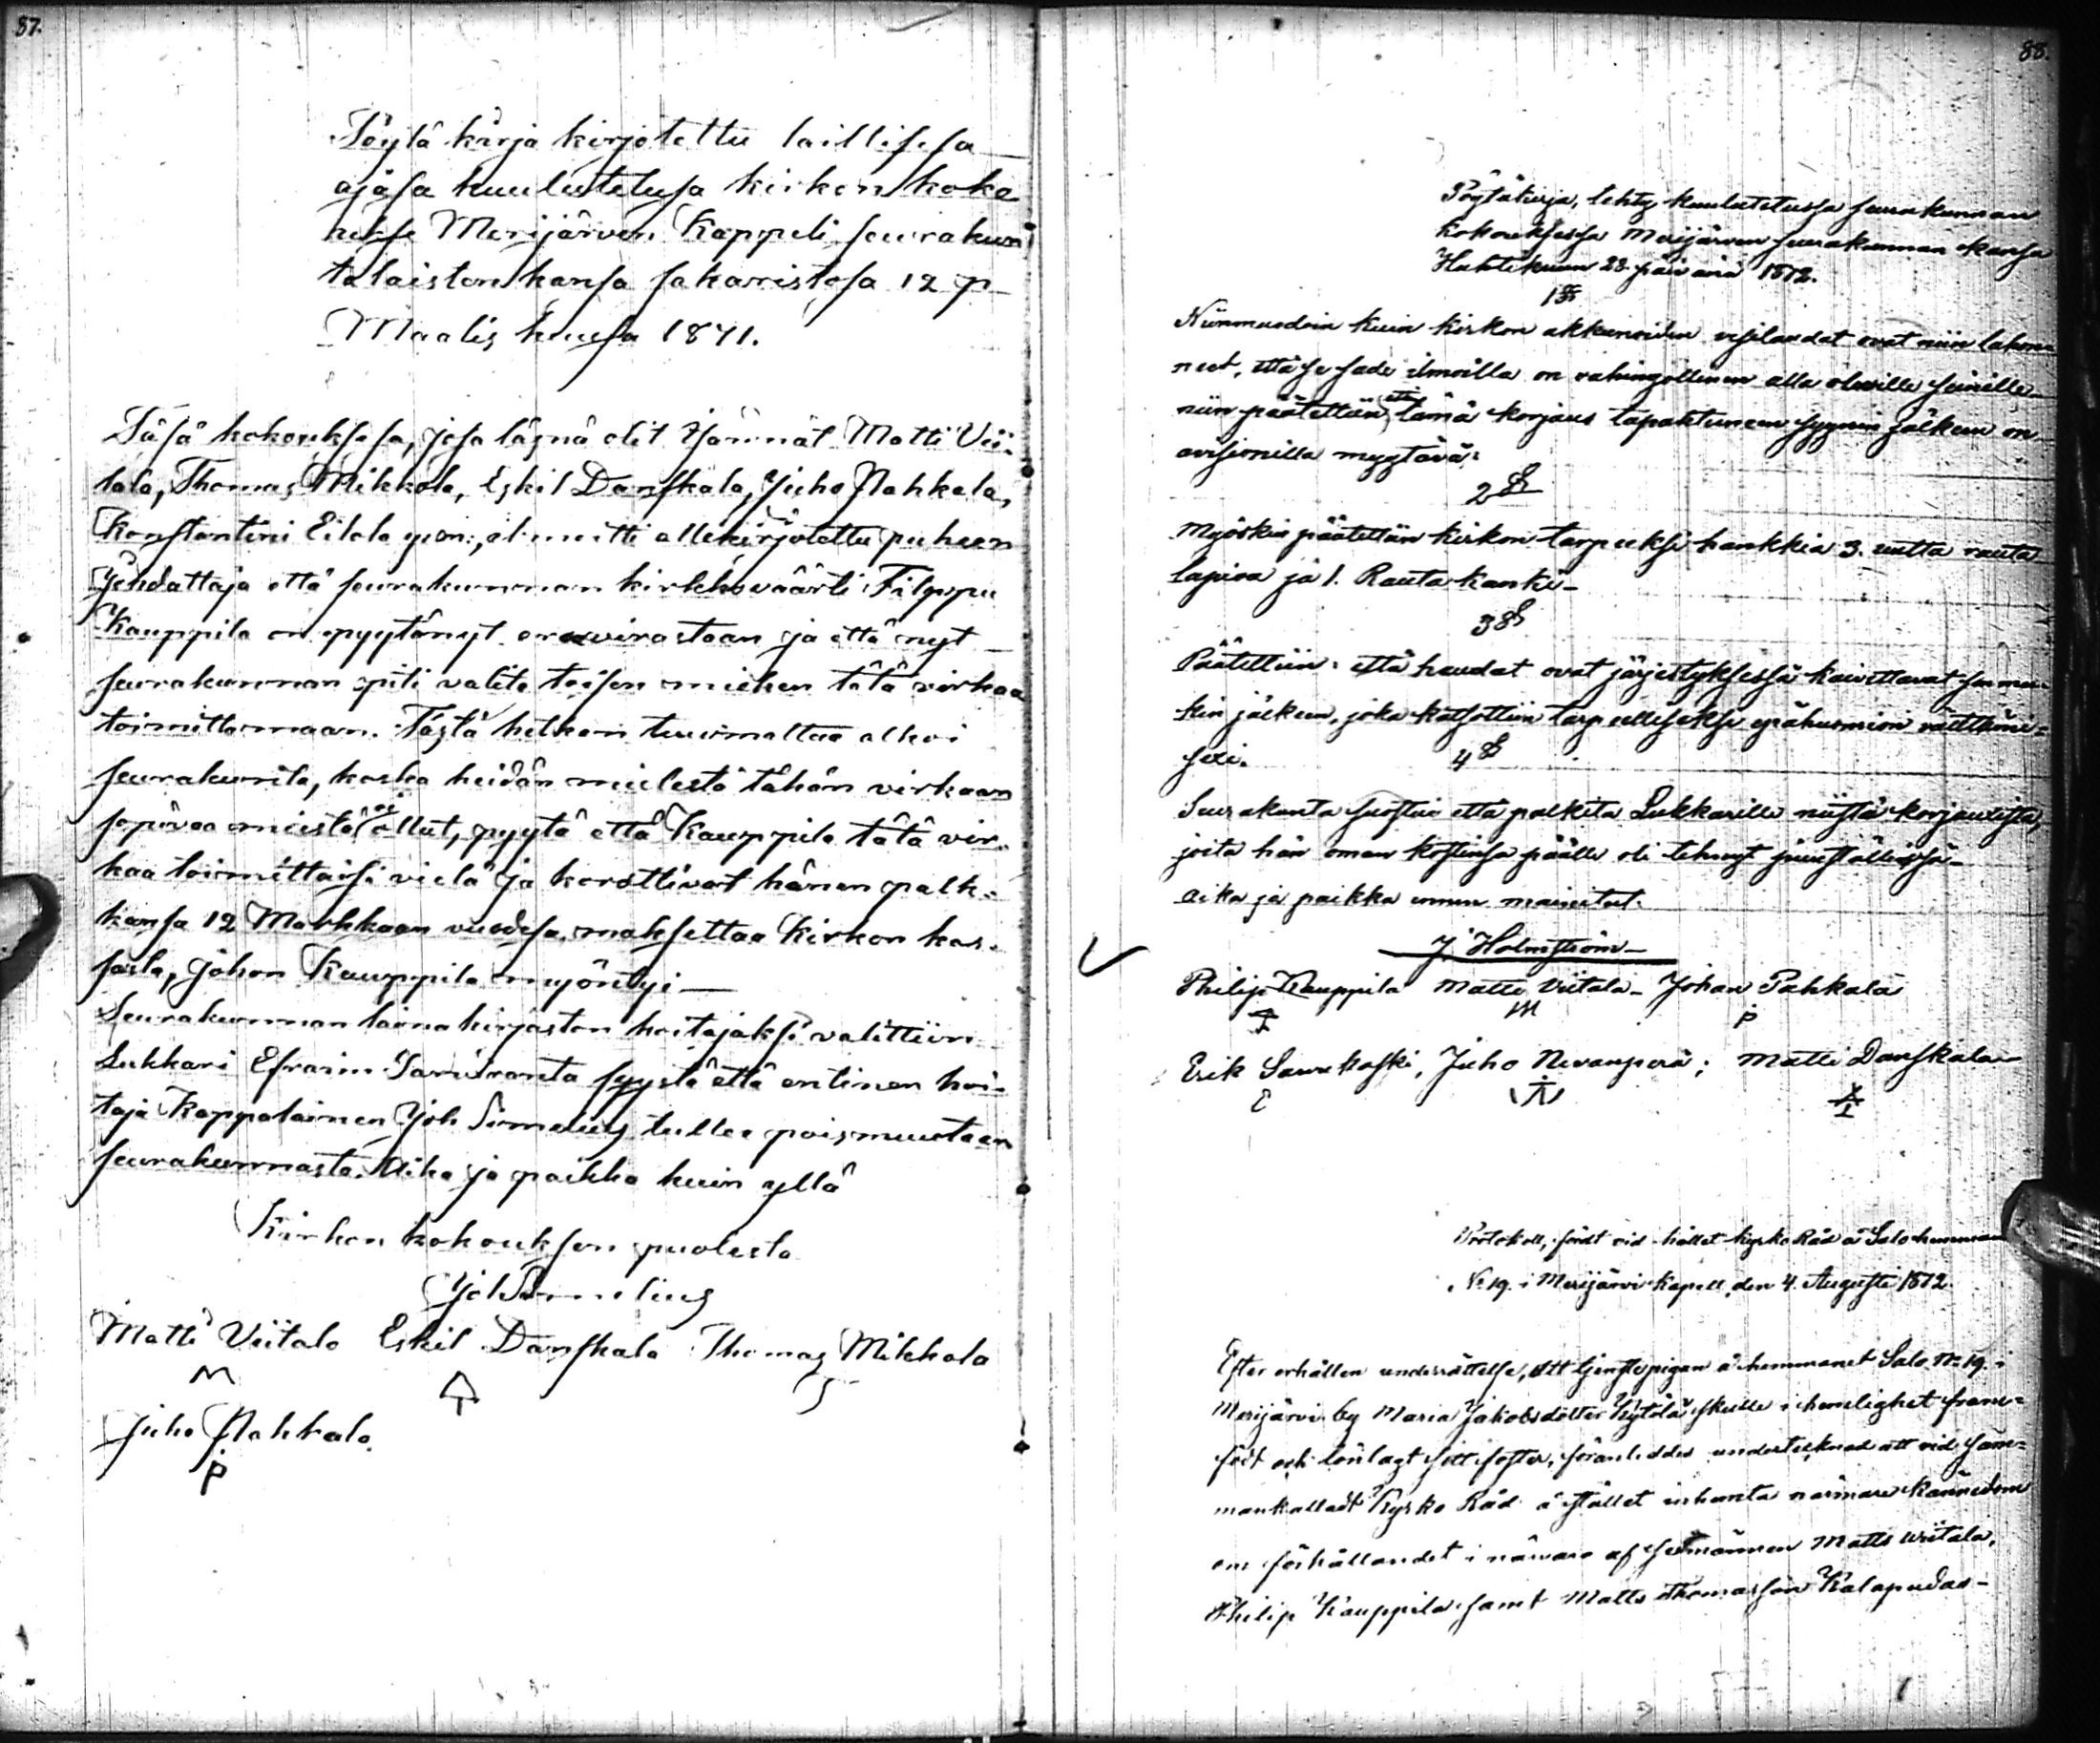 87.
Pöytä kirja kirjotettu laillisesa
ajasa kuulutetusa kirkon koko
uksesa Merijärven Kappeli seurakun
talaisten kansa sakaristosa 12 p
Maalis kuusa 1871.
Täsä kokouksesa, josa läsnä olit Isännät Matti Vii-
tala, Thomas Mikkola, Eskil Danskala, Juho Pahkala,
Konstantini Eilola ynn:, ilmoitti allekirjotettu puheen
Johdattaja että seurakunnan kirkkoväärti Filppu
Kauppila on pyytänyt erowirastaan ja että nyt
seurakunnan piti valita toisen miehen tätä virkaa
toimittamaan. Tästä hetken tuumaltaa alkoi
seurakunta, koska heidän mielestä tähän virkaan
sopivaa miestä ei ollut, pyytä että Kauppila tätä vir-
kaa toimittaisi vielä ja korottivat hänen palk-
kansa 12 Markkaan vuodesa maksettaa Kirkon kas-
sasta, johon Kauppila myöntyi —
Seurakunnan lainakirjaston hoitajaksi valittiin
Lukkari Efraim Saviranta syystä että entinen hoi-
taja Kappalainen Joh Simelius tullee poismuutaan
seurakunnasta. Aika ja paikka kuin yllä
Kirkon kokouksen puolesta
Joh Simelius
Matti Viitala Eskil Danskala Thomas Mikkola
M
Juho Pahkala
P
88.
Pöytäkirja, tehty kuulutetussa seurakunnan
kokouksessa Merijärven seurakunnan kansa
Huhtikuun 28 päivänä 1872.
1 §
Niinmuodoin kuin kirkon akkunoiden vesilaudat ovat niin lahon-
neet, että se sade ilmoilla on vahingollinen alla oleville seinille
niin päätettiin, että tämä korjaus tapahtuneen syynin jälkeen on
avisionilla myytävä:
2 §
Myöskin päätettiin kirkon tarpeeksi hankkia 3. uutta rauta
lapiota ja 1. Rauta kanki –
3 §
Päätettiin: että haudat ovat järjestyksessä kaivettavat
jälkeen, joka katsottiin tarpeelliseksi epähuomion välttämi-
sexi.
4 §
Seurakunta suostui että palkita Lukkarille niistä korjauxista,
joita hän oman kostinsa päälle oli tehnyt
Aika ja paikka ennen mainitut.
J. Holmström
Philip Kauppila Matti Viitala – Johan Pahkala
M P
Erik Saarekoski, Juho Nevanperä; Matti Danskala
E
Protokoll, fördt vid hållet kyrko Råd å Salo hemman
No 19. i Merijärvi Kapell, den 4. Augusti 1872.
Efter erhållen underrättelse, att tjenstepigan å hemmanet Salo No 19. i
Merijärvi by Maria Jakobsdotter Kytölä skulle i hemlighet fram-
född och lönlagt sitt foster, föranleddes undertecknad att vid sam-
mankalladt Kyrko Råd å stället inhemta närmare kännedom
om förhållandet i närvaro af sexmännen Matts Wiitala,
Philip Kauppila samt Matts Thomasson Kalapudas –